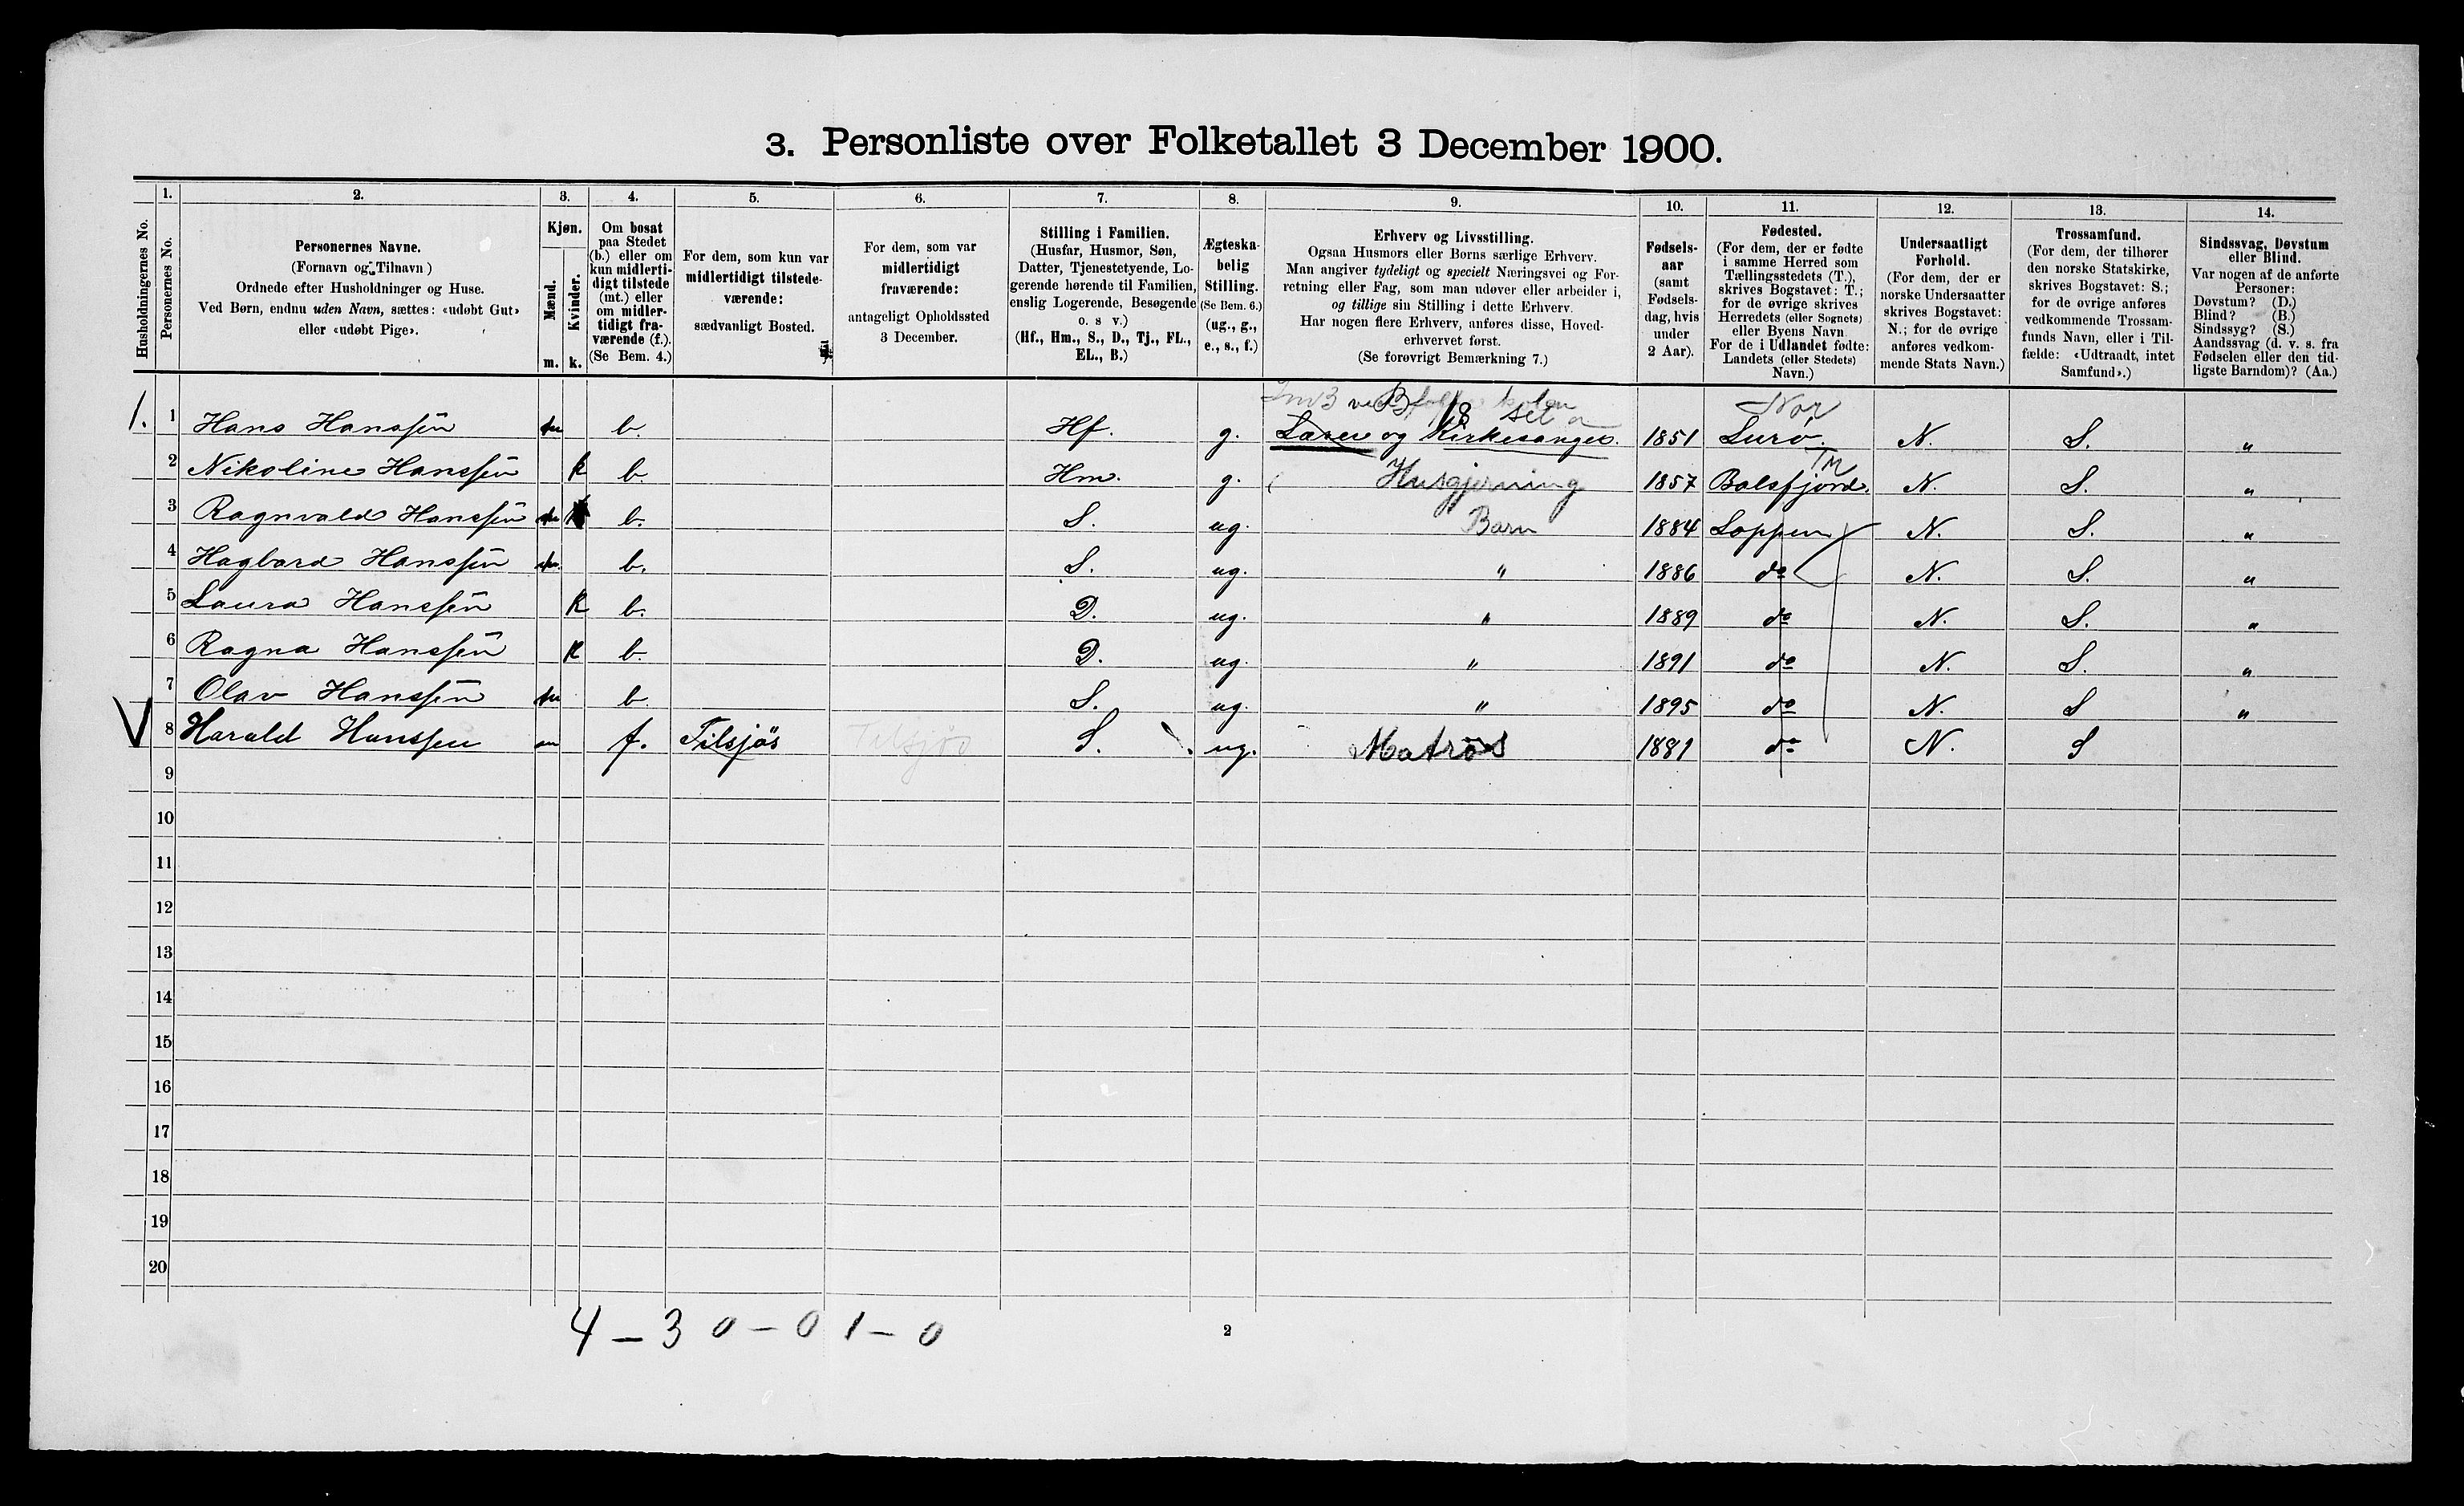 3. Personliste over Folketallet 3 December 1900.
Husholdningernes No.
1. Personernes No.
2. Personernes Navne.
(Fornavn og Tilnavn)
Ordnede efter Husholdninger og Huse.
Ved Børn, endnu uden Navn, sættes: «udøbt Gut»
eller «udøbt Pige».
3. Kjøn.
Mænd. m.
Kvinder. k.
4. Om bosat
paa Stedet
(b.) eller om
kun midlerti-
digt tilstede
(mt.) eller
om midler-
tidigt fra-
værende (f.).
(Se Bem. 4.)
5. For dem, som kun var
midlertidigt tilstede-
værende:
sædvanligt Bosted.
6. For dem, som var
midlertidigt
fraværende:
antageligt Opholdssted
3 December.
7. Stilling i Familien.
(Husfar, Husmor, Søn,
Datter, Tjenestetyende, Lo-
gerende hørende til Familien,
enslig Logerende, Besøgende
o. s v.)
(Hf., Hm., S., D., Tj., FL.,
EL., B.)
8. Ægteska-
belig
Stilling.
(Se Bem. 6.)
(ug., g.,
e., s., f.)
9. Erhverv og Livsstilling.
Ogsaa Husmors eller Børns særlige Erhverv.
Man angiver tydeligt og specielt Næringsvei og For-
retning eller Fag, som man udøver eller arbeider i,
og tillige sin Stilling i dette Erhverv.
Har nogen flere Erhverv, anføres disse, Hoved-
erhvervet først.
(Se forøvrigt Bemærkning 7.)
10. Fødsels-
aar
(samt
Fødsels-
dag, hvis
under
2 Aar).
11. Fødested.
(For dem, der er fødte
i samme Herred som
Tællingsstedets (T.),
skrives Bogstavet: T.;
for de øvrige skrives
Herredets (eller Sognets)
eller Byens Navn.
For de i Udlandet fødte:
Landets (eller Stedets)
Navn.)
12. Undersaatligt
Forhold.
(For dem, der er
norske Undersaatter
skrives Bogstavet:
N.; for de øvrige
anføres vedkom-
mende Stats Navn.)
13. Trossamfund.
(For dem, der tilhører
den norske Statskirke,
skrives Bogstavet: S.;
for de øvrige anføres
vedkommende Trossam-
funds Navn, eller i Til-
fælde: «Udtraadt, intet
Samfund».)
14. Sindssvag, Døvstum
eller Blind.
Var nogen af de anførte
Personer:
Døvstum? (D.)
Blind? (B.)
Sindssyg? (S.)
Aandssvag (d. v. s. fra
Fødselen eller den tid-
ligste Barndom)? (Aa.)
Nor
1. 1 Hans Hanssen m b. Hf. g. Lærer og Kirkesanger. 1851 Lurø. N. S. "
2 Nikoline Hanssen k b Hm. g. Husgjerning 1857 Balsfjord. N. S. "
3 Ragnvald Hanssen m b. S. ug. Barn 1884 Loppen N. S. "
4 Hagbard Hanssen m. b. S. ug. " 1886 do N. S. "
5 Laura Hanssen k b. D. ug. " 1889 do N. S. "
6 Ragna Hanssen k b. D. ug. " 1891 do N. S. "
7 Olav Hanssen m b S. ug. " 1895 do N. S "
V 8 Harald Hanssen m f. Tilsjøs Tilsjøs S. ug. Matros 1881 do N. S
9
10
11
12
13
14
15
16
17
18
19
20
4 – 3 0 – 0 1 – 0
2